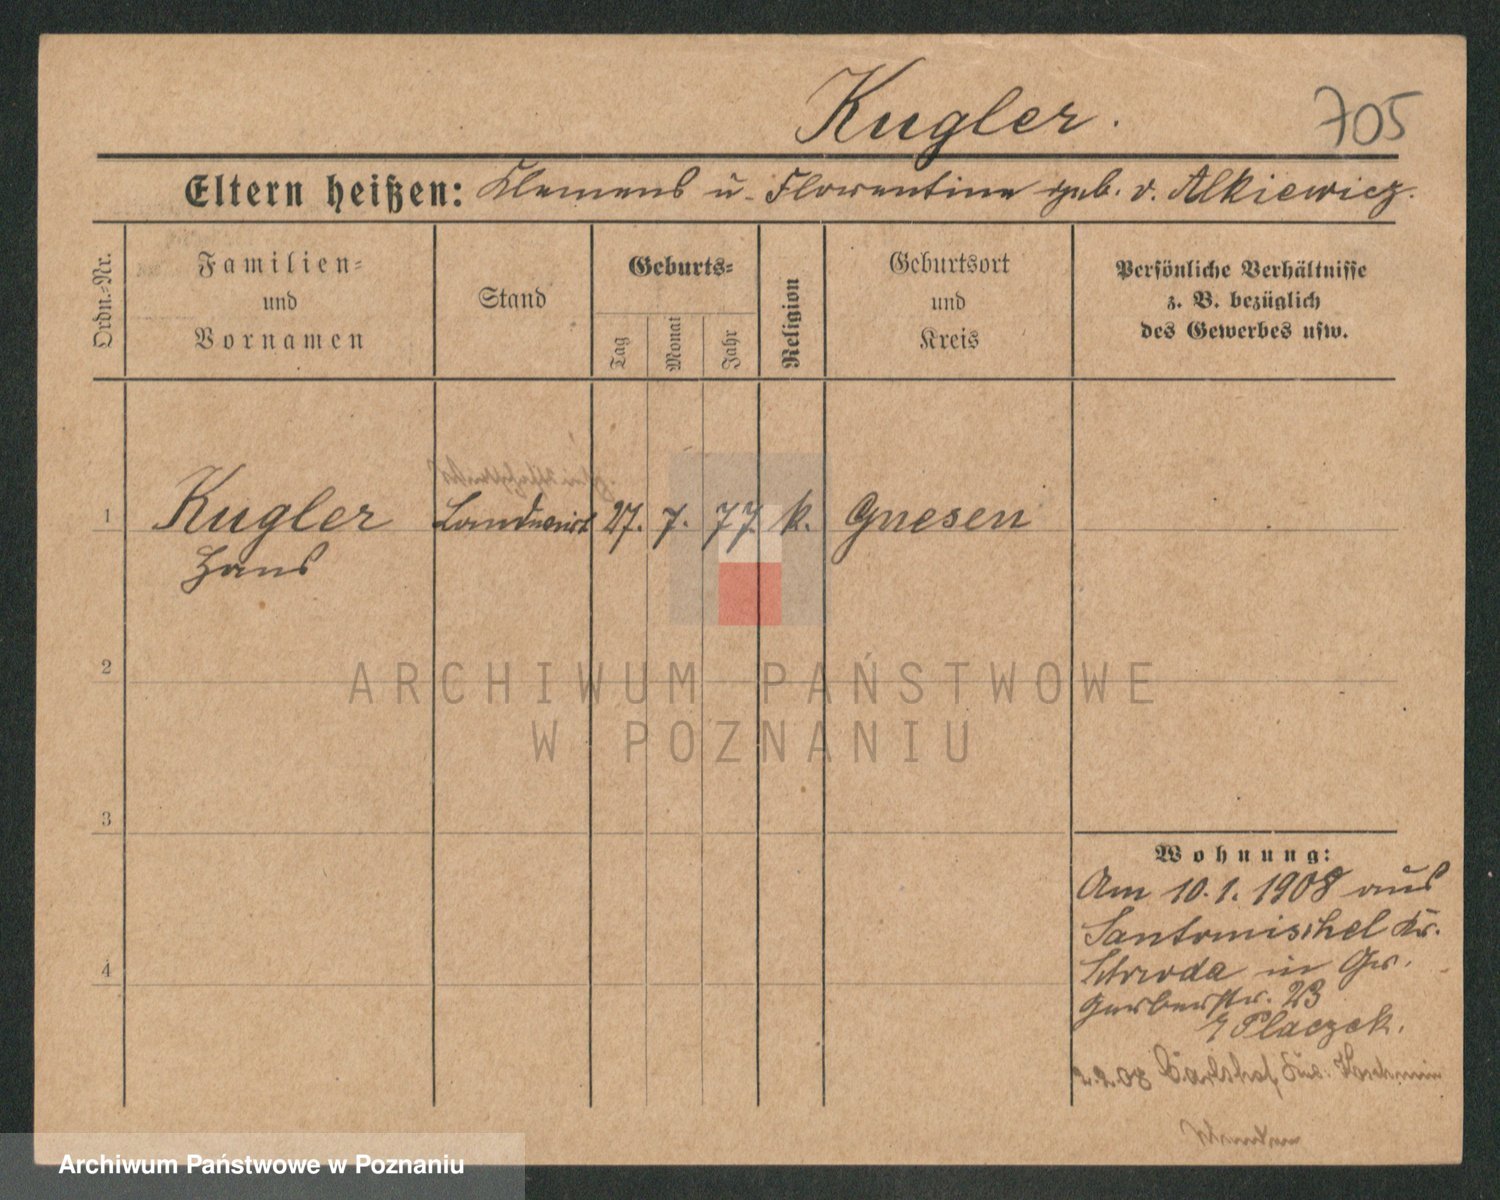 Kugler. 705
Eltern heißen: Klemens u. Florentine geb. v. Alkiewicz.
Ordn.=Nr.
Familien=
und
Vornamen
Stand
Geburts=
Tag
Monat
Jahr
Religion
Geburtsort
und
Kreis
Persönliche Verhältnisse
z. B. bezüglich
des Gewerbes usw.
1 Kugler Landwirt 27. 7. 77. k. Gnesen
Hans
2
3
4
Wohnung:
Am 10.1.1908 aus
Santomischel Kr.
Schroda in Gr.
Gerberstr. 23
Placzek.
2.2.08 Carlshof
ARCHIWUM PAŃSTWOWE
W POZNANIU
Archiwum Państwowe w Poznaniu